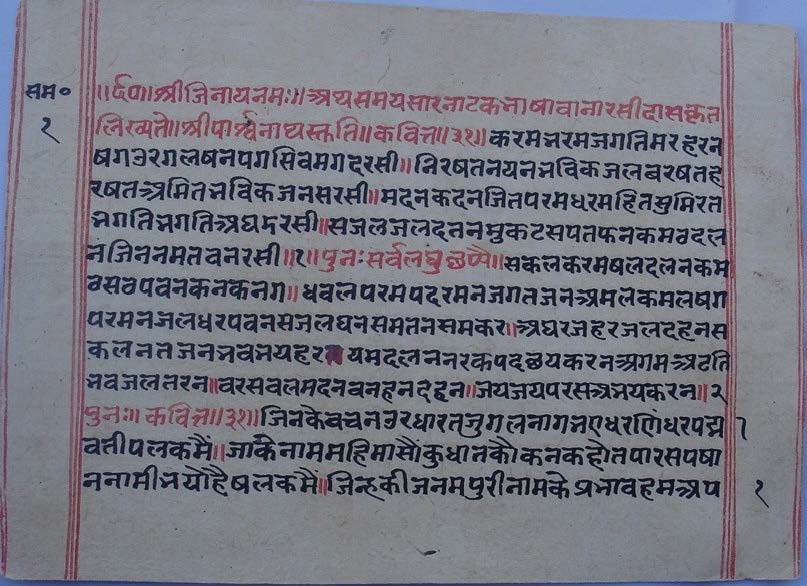 ॥र्द०॥श्रीजिनायनमः॥अथसमयसारनाटकभाषावानारसीदासकृत
सम०
लिख्यते॥श्रीपार्श्वनाथस्तुति॥कवित्त॥३१॥करमभरमजगतिमरहरन
१
षगउरगलषनपगसिवमगदरसी॥निरषतनयनभविकजलबरषतह
रषतअमितभविकजनसरसी॥मदनकदनजितपरमधरमहितसुमिरत
भगतिभगतिअघदरसी॥सजलजलदतनमुकटसपतफनकमठदल
नजिननमतबनरसी॥१॥पुनःसर्वलघुछप्पै॥सकलकरमषलदलनकम
ठसठपवनकनकनग॥धवलपरमपदरमनजगतजनअमलकमलषग
परमतजलधरपवनसजलघनसमतनसमकर॥अघरजहरजलदहनस
कलनतजनभवभयहर॥यमदलननरकपदछयकरनअगमअटति
भवजलतरन॥वरसवलमदनवनहनदहन॥जयजयपरसअभयकरन॥२
पुनः॥कवित्त॥३१॥जिनकेवचनउरधारतजुगलनागभएधरणिंधरपद्म
वतीपलकमैं॥जाकेनाममहिमासौंकुधातकौकनकहोतपारसपषा
ननामीभयौहैषलकमैं॥जिन्हकीजनमपुरीनामकेप्रभावहमअप
१